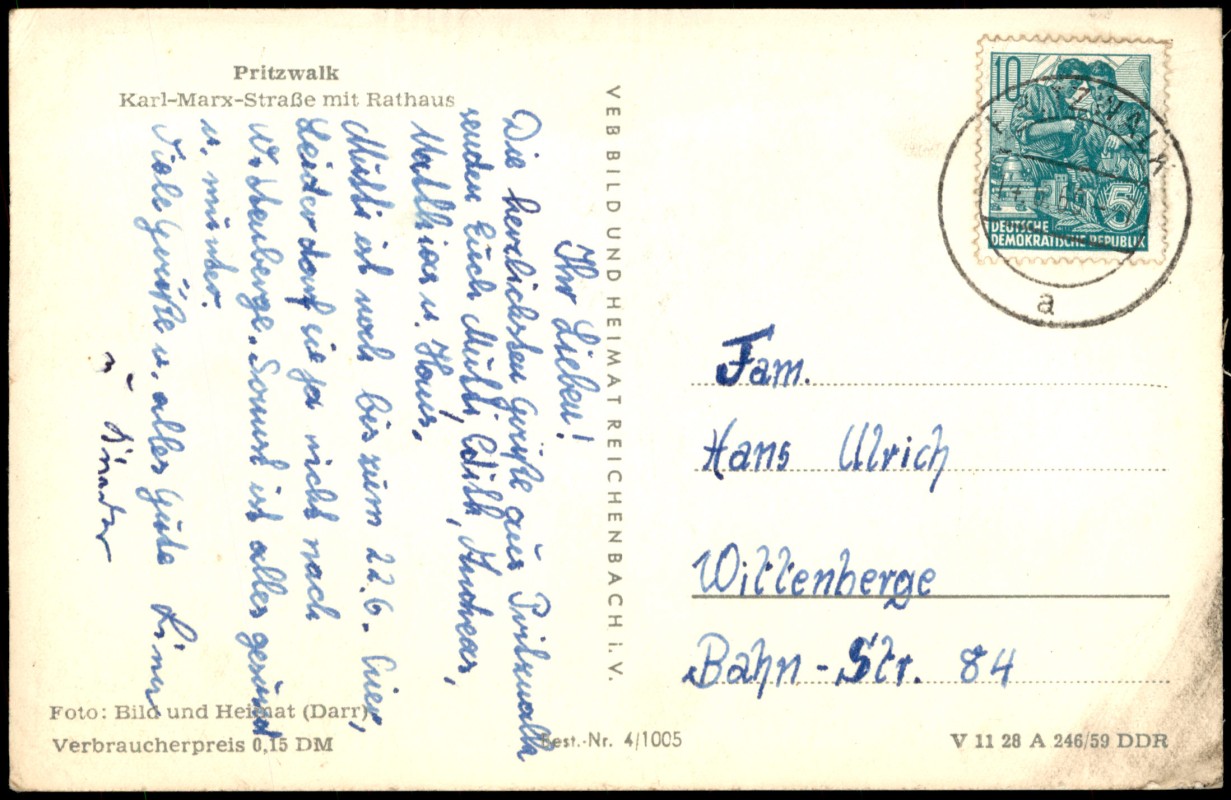 Pritzwalk
Karl-Marx-Straße mit Rathaus
Ihr Lieben!
Die herzlichsten Grüße aus Pritzwalk
senden Euch Mutti, Edith, Andreas,
Matthias u. Hans,
Mutti ist noch bis zum 22.6. hier,
Leider darf sie ja nicht nach
Wittenberge. Sonst ist alles gesund
u. munter.
Viele Grüße u. alles Gute
u. Kinder
Foto: Bild und Heimat (Darr)
Verbraucherpreis 0,15 DM
VEB BILD UND HEIMAT REICHENBACH i. V.
Best.-Nr. 4/1005
10
5
DEUTSCHE
DEMOKRATISCHE REPUBLIK
PRITZWALK
a
Fam.
Hans Ulrich
Wittenberge
Bahn-Str. 84
V 11 28 A 246/59 DDR